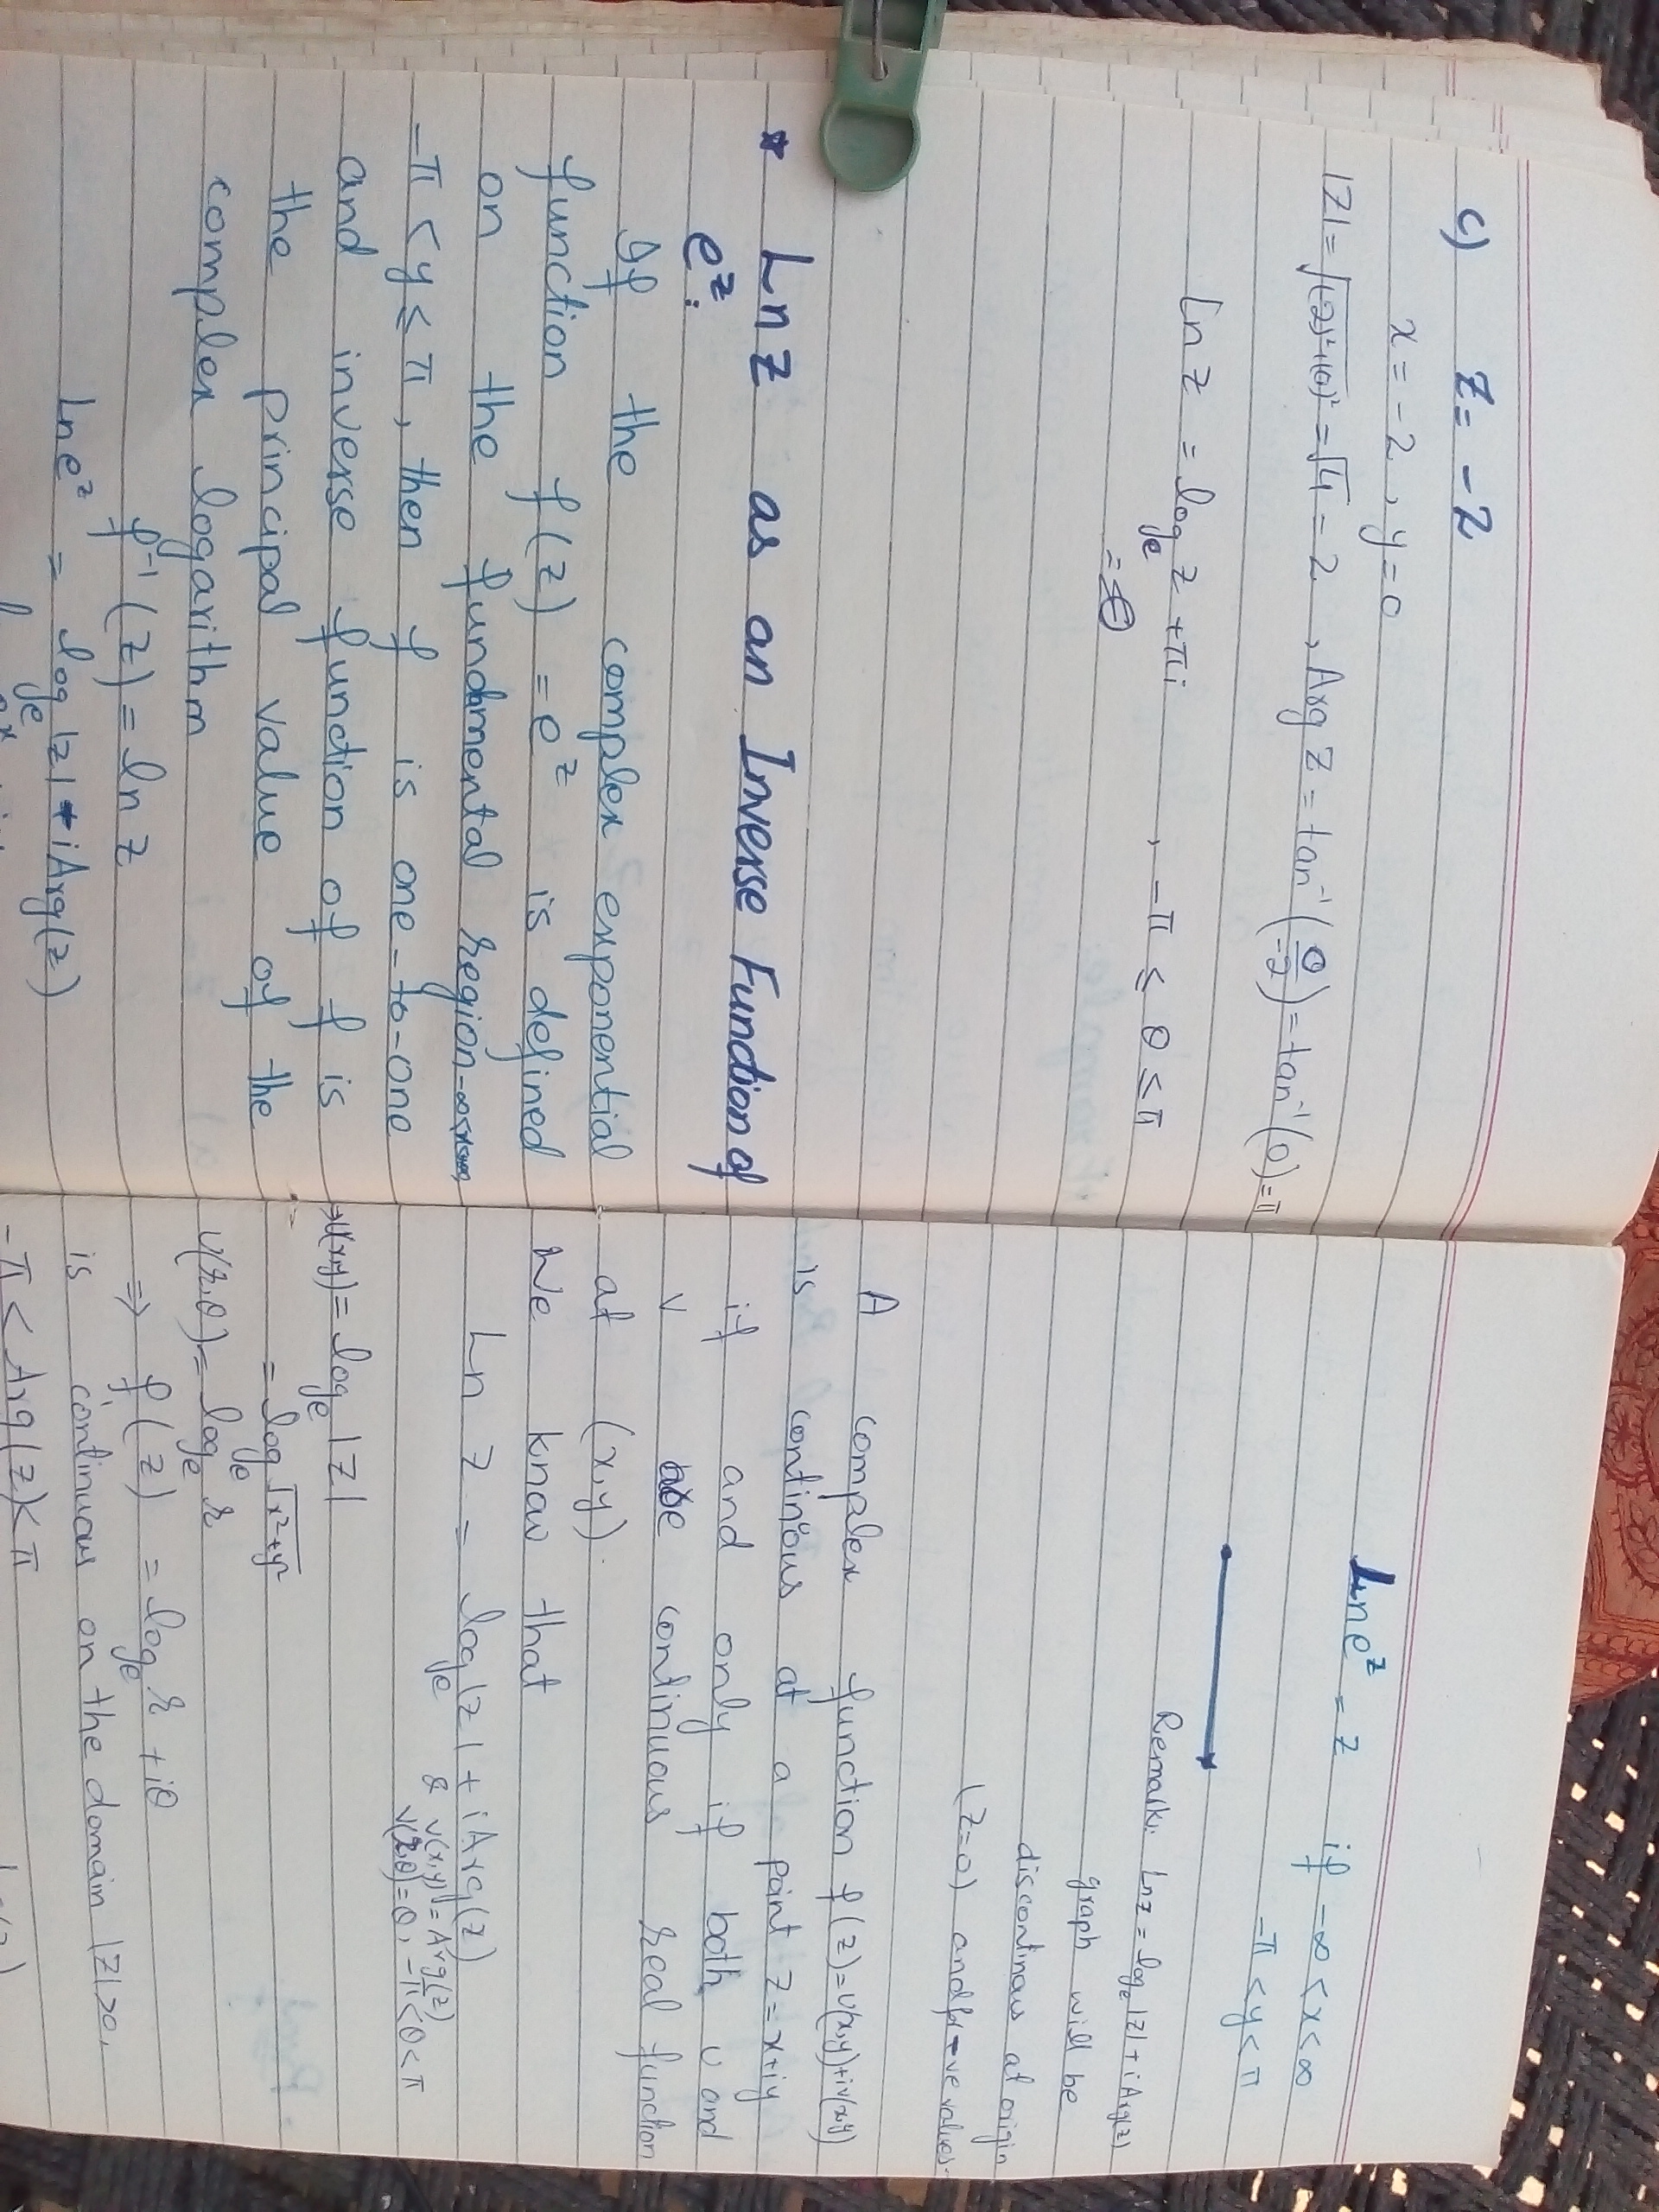 c) z = -2
x = -2, y = 0
|z| = √(-2)²+(0)² = √4 = 2, Arg z = tan⁻¹(0/-2) = tan⁻¹(0) = π
Ln z = logₑ 2 + πi , -π ≤ θ ≤ π
* Ln z as an Inverse Function of
e^z:
If the complex exponential
function f(z) = e^z is defined
on the fundamental region -∞<x<∞,
-π < y ≤ π, then f is one-to-one
and inverse function of f is
the principal value of the
complex logarithm
f⁻¹(z) = ln z
Ln e^z = logₑ|z| + i Arg(z)
Ln e^z = z if -∞ < x < ∞
-π < y < π
Remark: Ln z = logₑ|z| + i Arg(z)
graph will be
discontinous at origin
(z=0) and for -ve values.
A complex function f(z) = u(x,y)+iv(x,y)
is continous at a point z = x+iy
if and only if both u and
v are continuous real function
at (x,y).
We know that
Ln z = logₑ|z| + i Arg(z)
& v(x,y) = Arg(z)
v(r,θ) = θ, -π < θ < π
⇒ u(x,y) = logₑ|z|
= logₑ √x²+y²
u(r,θ) = logₑ r
⇒ f(z) = logₑ r + iθ
is continuous on the domain |z|>0,
-π < Arg(z) < π